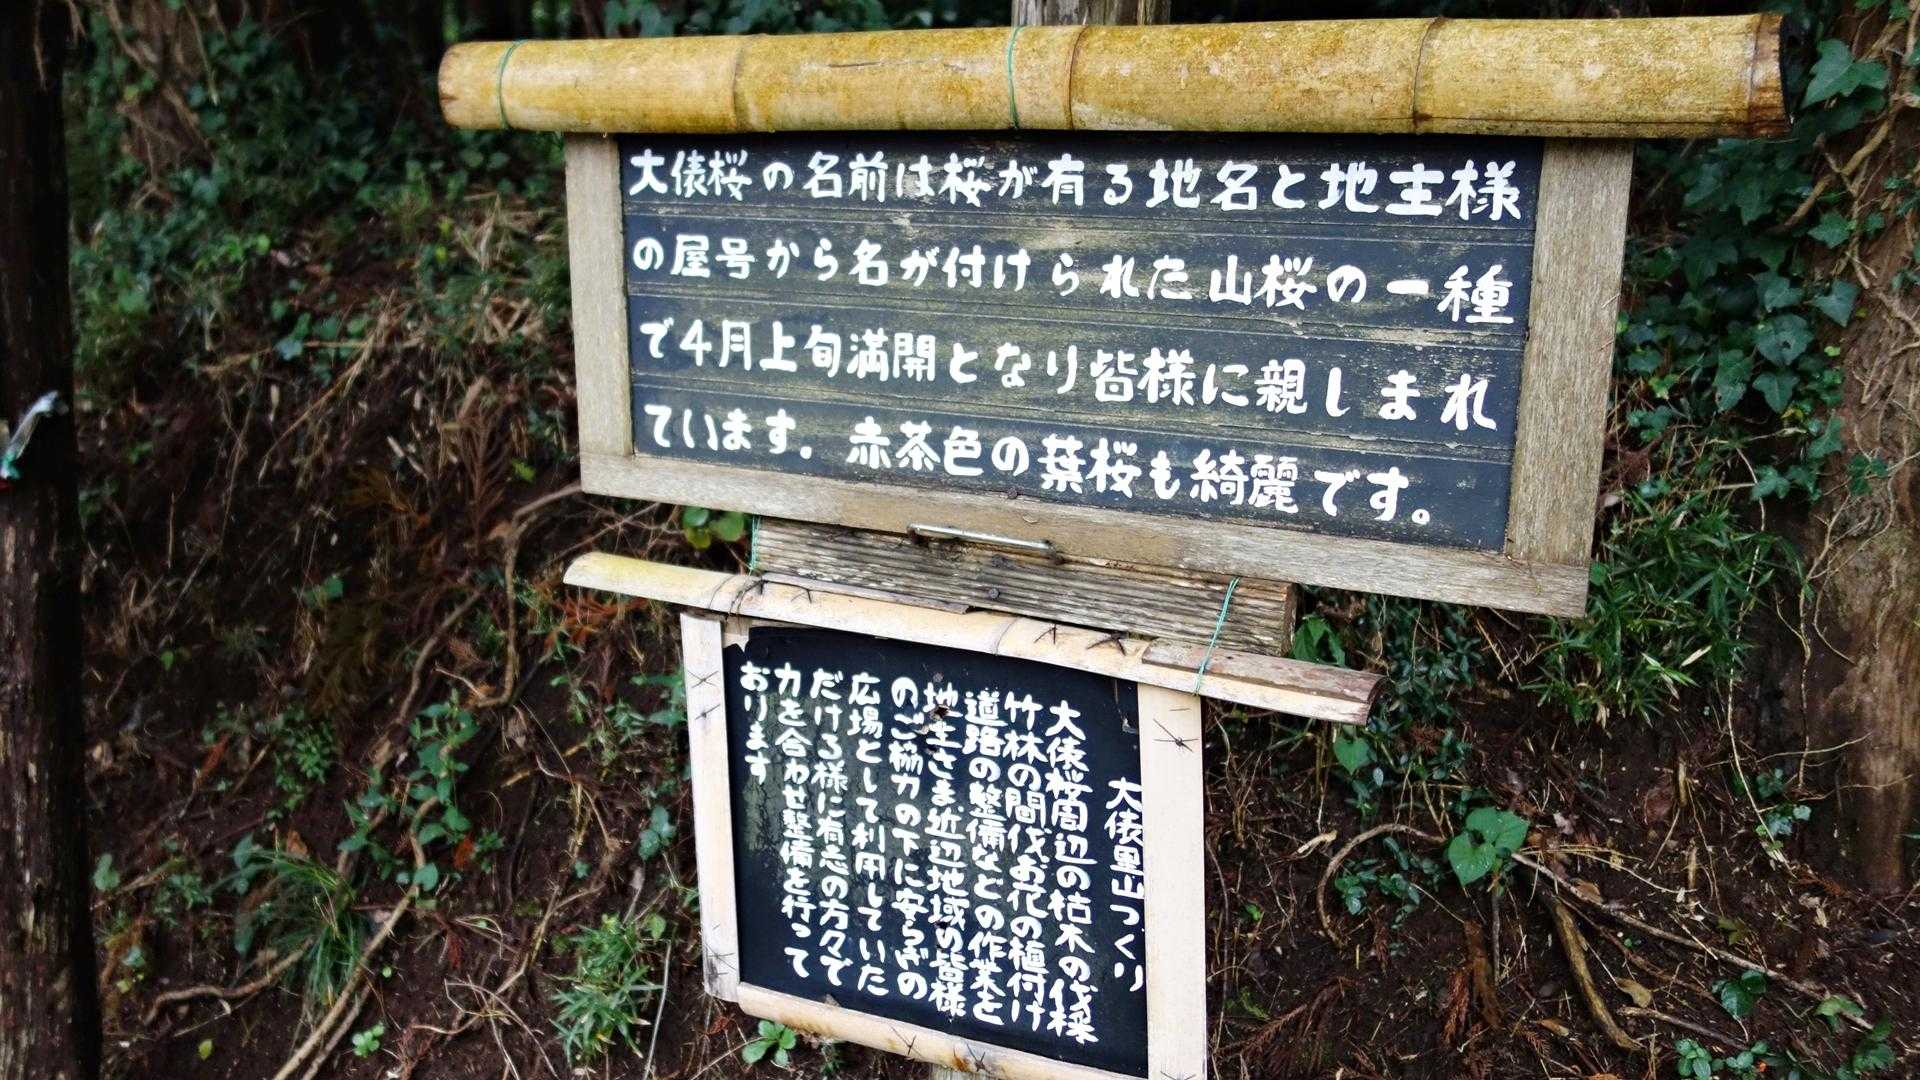 大俵桜の名前は桜が有る地名と地主様
の屋号から名が付けられた山桜の一種
で4月上旬満開となり皆様に親しまれ
ています。赤茶色の葉桜も綺麗です。
大俵里山つくり
大俵桜周辺の枯木の伐採
竹林の間伐お花の植付け
道路の整備などの作業を
地主さま、近辺地域の皆様
のご協力の下に安らぎの
広場として利用していた
だける様に有志の方々で
力を合わせ整備を行って
おります